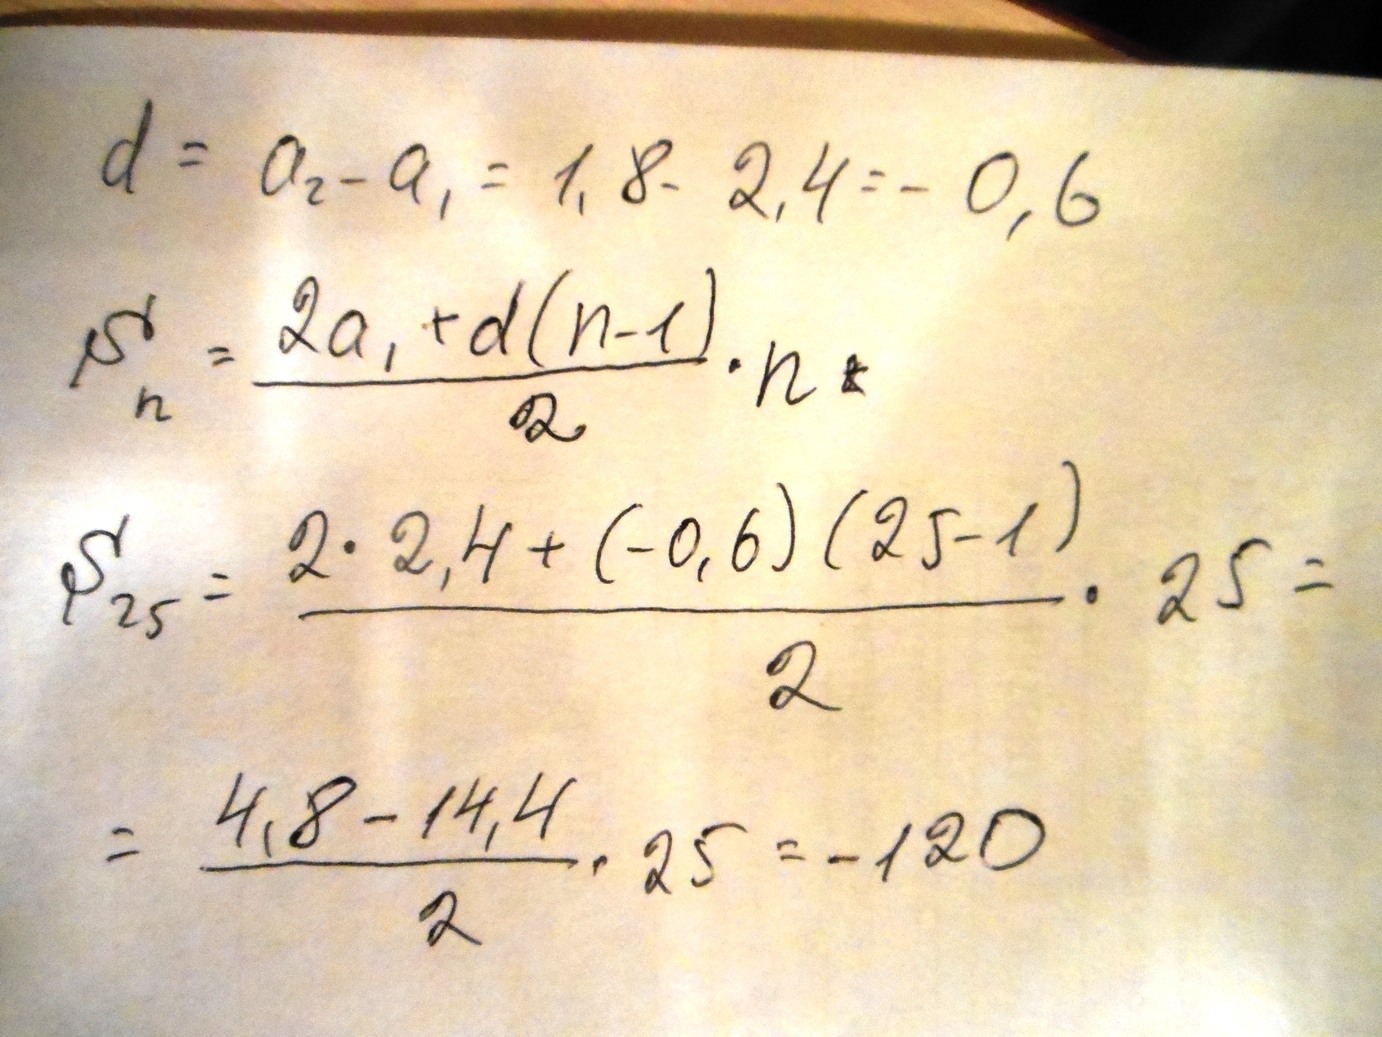 d = a₂ - a₁ = 1,8 - 2,4 = - 0,6
Sₙ = (2a₁ + d(n-1))/2 · n
S₂₅ = (2 · 2,4 + (-0,6)(25-1))/2 · 25 =
= (4,8 - 14,4)/2 · 25 = -120